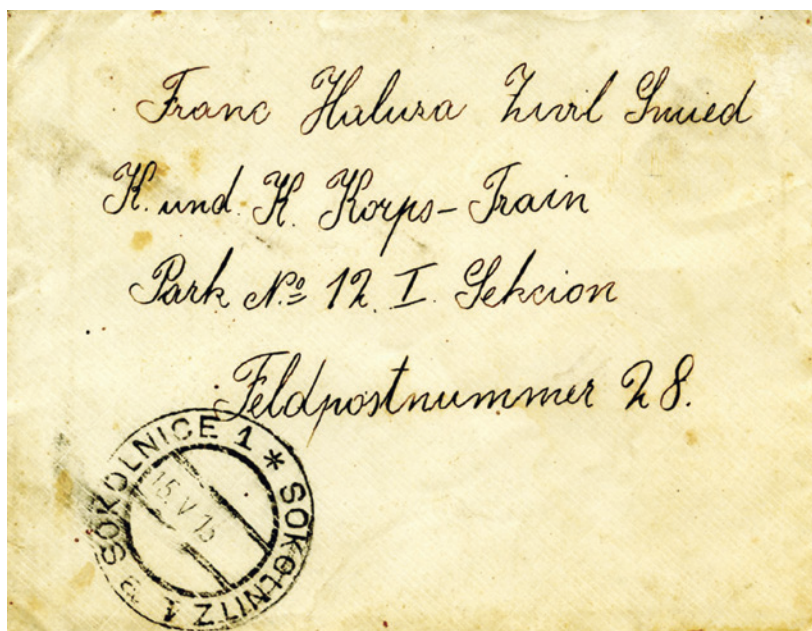 Franc Halusa Zivil Smied
K. und. K. Korps-Train
Park No 12. I. Sekcion
Feldpostnummer 28.
SOKOLNICE 1 * SOKOLNITZ 1
15 V 15